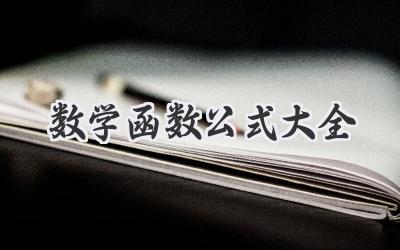 数学函数公式大全